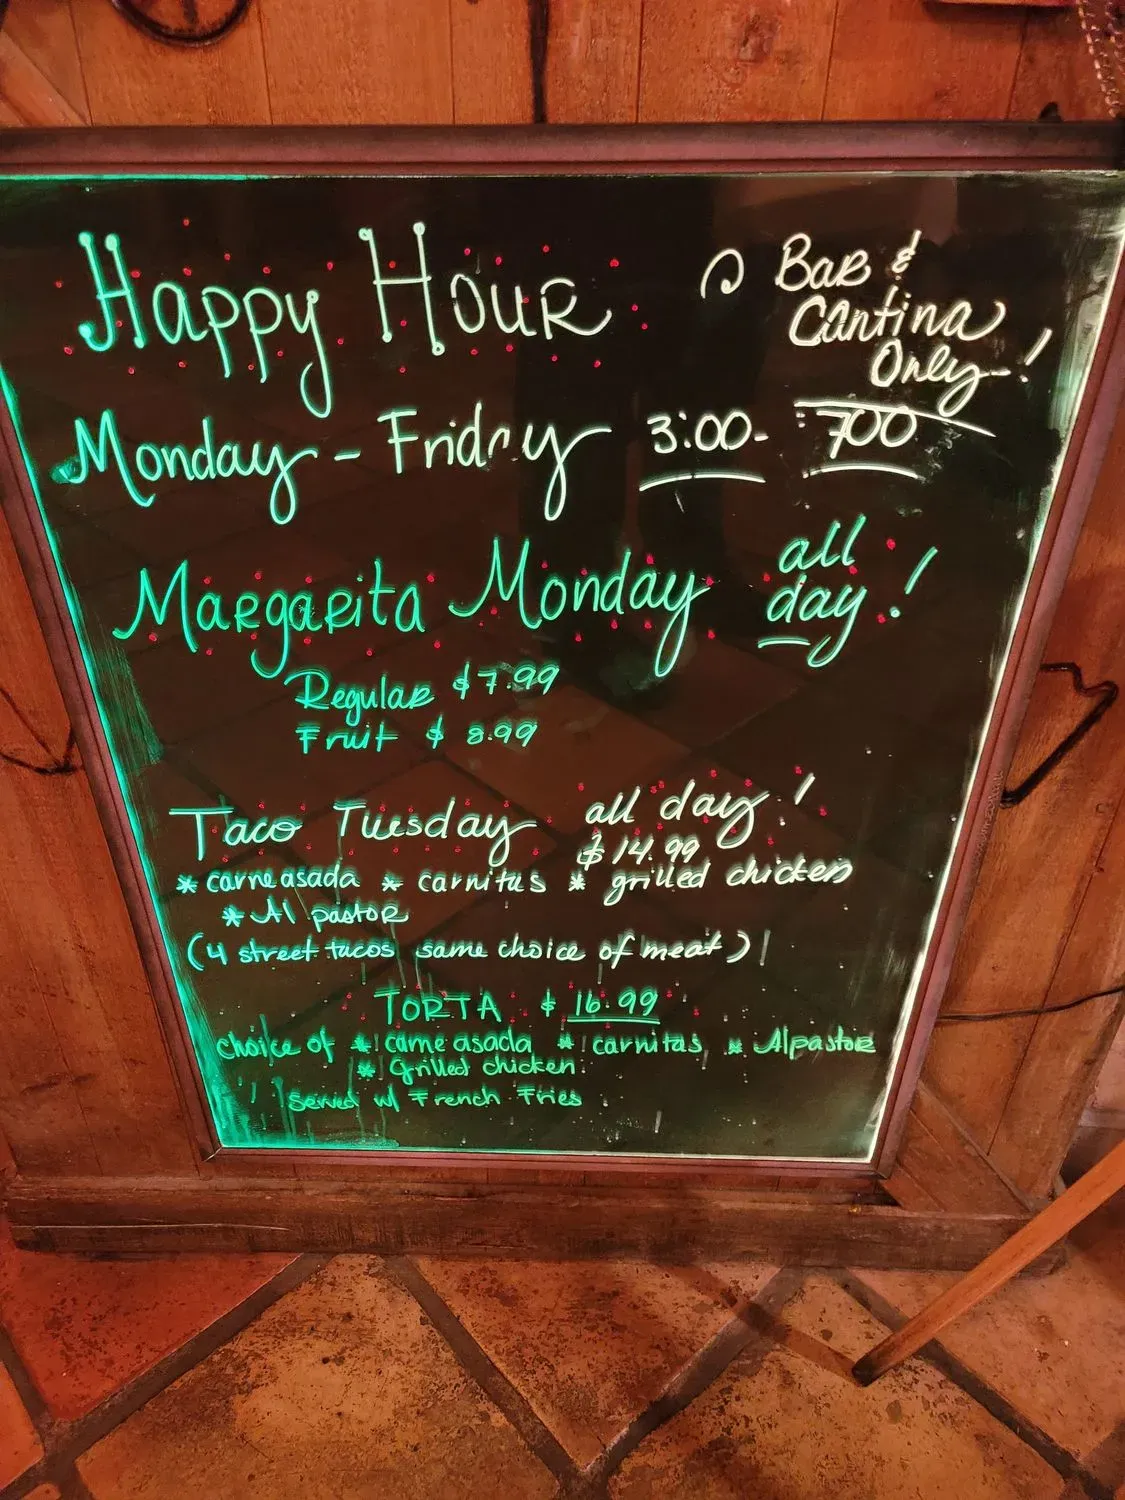 Happy Hour
Bar &
Cantina
Only!
Monday - Friday 3:00- 700
Margarita Monday all day!
Regular $7.99
Fruit $ 8.99
Taco Tuesday all day!
$14.99
* carne asada * carnitas * grilled chicken
* Al pastor
(4 street tacos same choice of meat)
TORTA $ 16.99
choice of * carne asada * carnitas * Al pastor
* Grilled chicken
served w/ French Fries